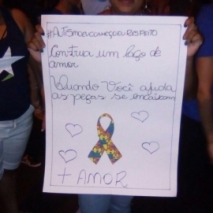 #AUTISMOCOMEÇACORESPEITO
Construa um laço de
amor
Quando Você ajuda,
as peças se encaixam
+ AMOR